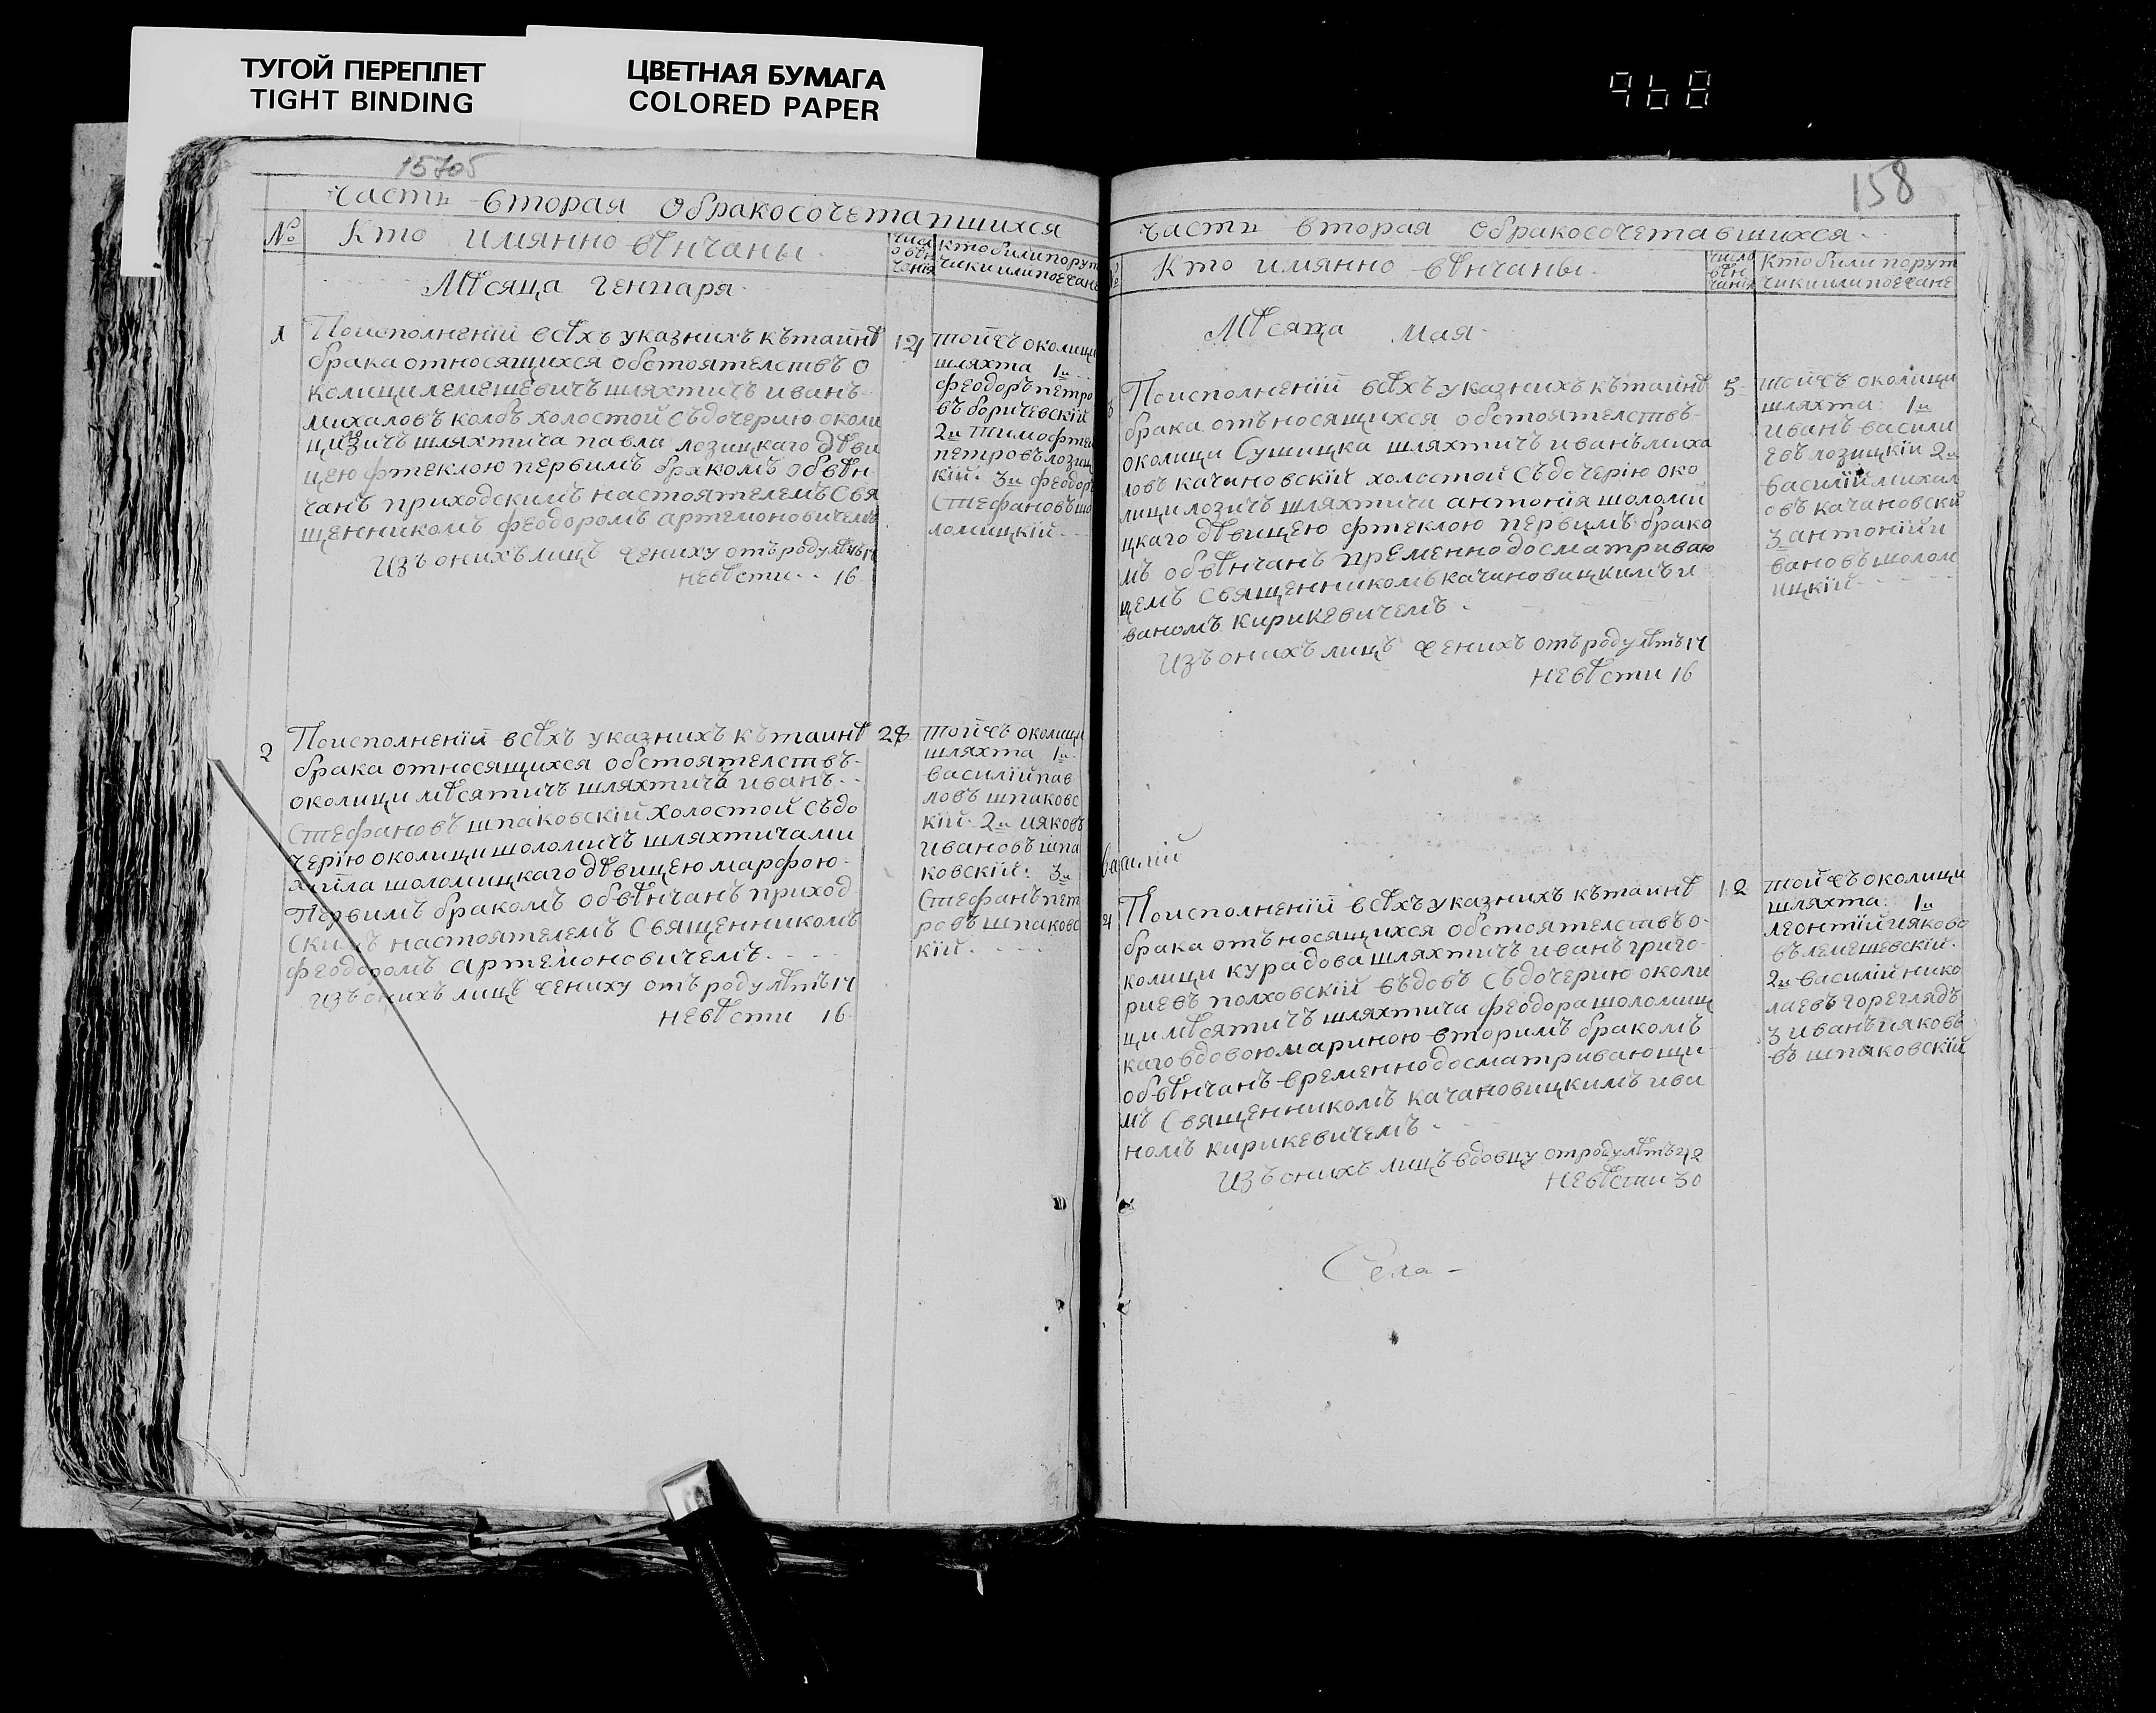 ТУГОЙ ПЕРЕПЛЕТ
TIGHT BINDING
ЦВЕТНАЯ БУМАГА
COLORED PAPER
968
15705
Часть вторая обракосочетапшихся
№
Кто имянно вѣнчаны
Мѣсяца Генпаря
1
Поисполненій всѣхъ указнихъ кътаинѣ
брака относящихся обстоятелствъ о
колици лемешевичъ шляхтичъ иванъ
михаловъ колбъ холостой съдочерию околи
шляхтича павла лозицкаго дѣви
цею фтеклою первимъ бракомъ обвѣн
чанъ приходскимъ настоятелемъ свя
щенникомъ феодоромъ артемоновичемъ
Изъ онихъ лицъ жениху отъ роду лѣтъ 17
невѣсти 16
тойжъ околици
шляхта 1й
феодоръ петро
въ боричевскій
2й тимофтей
петровъ лозиц
кій. 3й феодоръ
стефановъ шо
ломицкій
2
Поисполненій всѣхъ указнихъ кътаинѣ
брака относящихся обстоятелствъ
околици мѣсятичъ шляхтичъ иванъ
стефановъ шпаковскій холостой съдо
черію околици шоломичъ шляхтичами
шоломицкаго дѣвицею марфою
первимъ бракомъ обвѣнчанъ приход
скимъ настоятелемъ священникомъ
феодоромъ артемоновичемъ
изъ онихъ лицъ жениху отъ роду лѣтъ 17
невѣсти 16
28
тойжъ околици
шляхта 1й
василій пав
ловъ шпаковс
кій 2й ияковъ
ивановъ шпа
ковскій: 3й
стефанъ пет
ровъ шпаковс
кій
158
Часть вторая обракосочетавшихся
Кто имянно вѣнчаны
число
вѣн
чанія
Кто били порут
чики или поезжане
Мѣсяца мая
Поисполненій всѣхъ указнихъ кътаинѣ
брака отъносящихся обстоятелствъ
околици Сушицка шляхтичъ иванъ миха
ловъ качановскій холостой съдочерію око
лици лозичъ шляхтича антонія шоломи
цкаго дѣвицею фтеклою первимъ брако
мъ обвѣнчанъ временно досматриваю
щемъ священникомъ качановицкимъ и
ваномъ кирикевичемъ
Изъ онихъ лицъ женихъ отъ роду лѣтъ 17
невѣсти 16
5
тойжъ околици
шляхта: 1й
иванъ васили
евъ лозицкій 2й
василій михал
овъ качановскій
3 антоній и
вановъ шолом
ицкій
василій
4
Поисполненій всѣхъ указнихъ кътаинѣ
брака отъносящихся обстоятелствъ о
колици курадова шляхтичъ иванъ григо
риевъ полховскій въдовъ съдочерию околи
ци мѣсятичъ шляхтича феодора шоломиц
каго вдовою мариною вторимъ бракомъ
обвѣнчанъ временно досматривающи
мъ священникомъ качановицкимъ ива
номъ кирикевичемъ
Изъ онихъ лицъ вдовцу от роду лѣтъ 42
невѣсти 30
12
тойжъ околици
шляхта: 1й
леонтій ияково
въ лемешевскій
2й василій нико
лаевъ гореглядъ
3 иванъ ияковъ
въ шпаковскій
Села